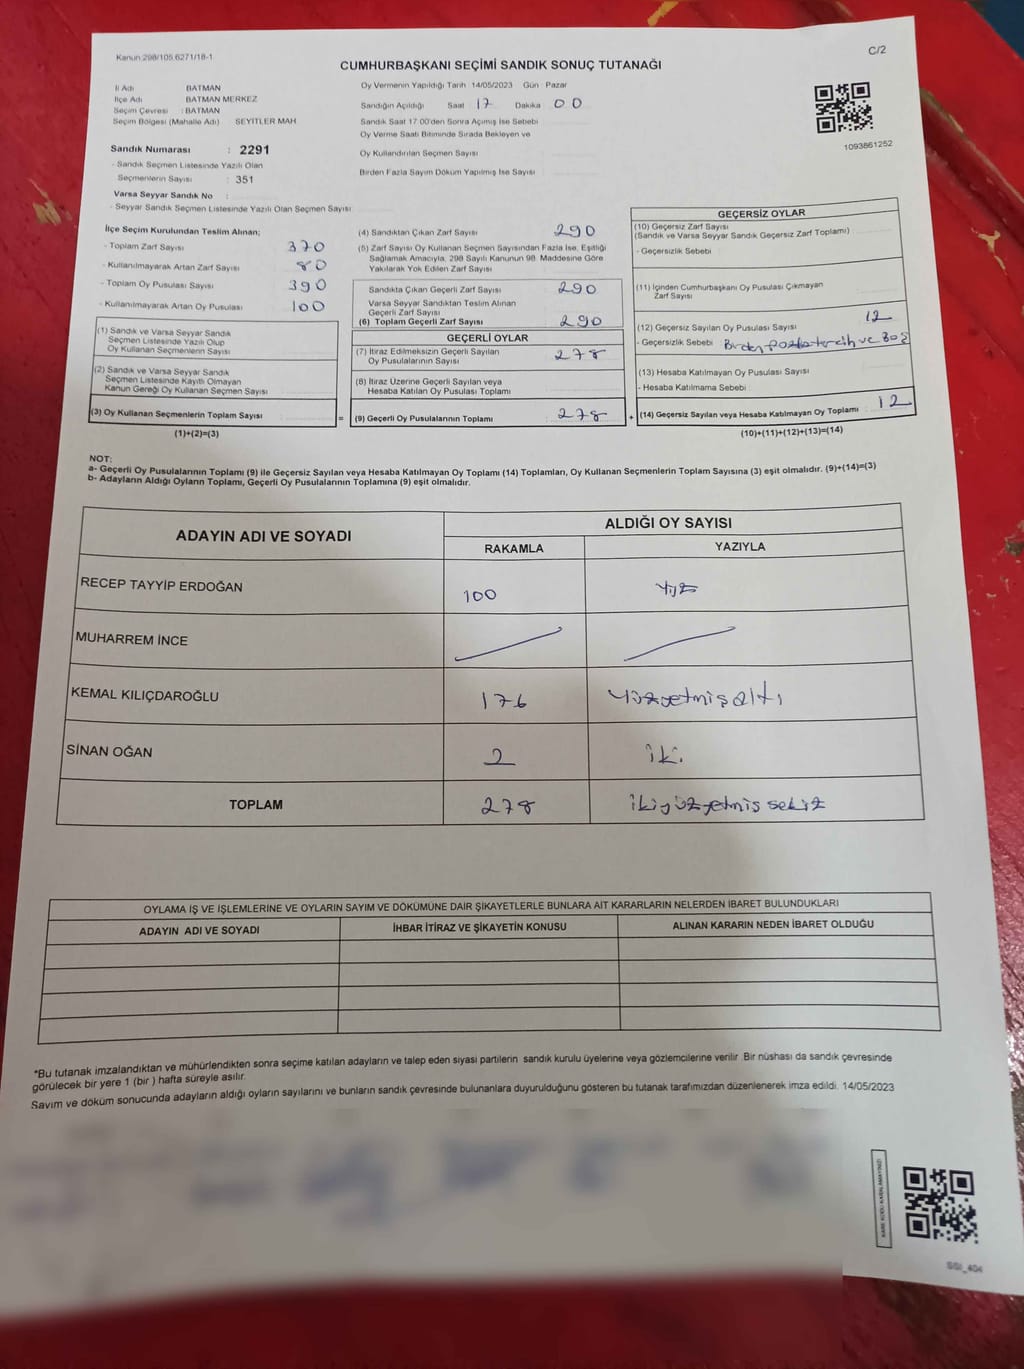 Kanun:298/105,6271/18-1
C/2
CUMHURBAŞKANI SEÇİMİ SANDIK SONUÇ TUTANAĞI
İl Adı BATMAN
İlçe Adı BATMAN MERKEZ
Seçim Çevresi : BATMAN
Seçim Bölgesi (Mahalle Adı) SEYİTLER MAH
Sandık Numarası : 2291
- Sandık Seçmen Listesinde Yazılı Olan
Seçmenlerin Sayısı : 351
Varsa Seyyar Sandık No :
- Seyyar Sandık Seçmen Listesinde Yazılı Olan Seçmen Sayısı:
Oy Vermenin Yapıldığı Tarih 14/05/2023 Gün Pazar
Sandığın Açıldığı Saat 17 Dakika 00
Sandık Saat 17:00'den Sonra Açımış İse Sebebi
Oy Verme Saati Bitiminde Sırada Bekleyen ve
Oy Kullandırılan Seçmen Sayısı
Birden Fazla Sayım Döküm Yapılmış İse Sayısı
1093861252
İlçe Seçim Kurulundan Teslim Alınan;
- Toplam Zarf Sayısı 370
- Kullanılmayarak Artan Zarf Sayısı 80
- Toplam Oy Pusulası Sayısı 390
- Kullanılmayarak Artan Oy Pusulası 100
(1) Sandık ve Varsa Seyyar Sandık
Seçmen Listesinde Yazılı Olup
Oy Kullanan Seçmenlerin Sayısı
(2) Sandık ve Varsa Seyyar Sandık
Seçmen Listesinde Kayıtlı Olmayan
Kanun Gereği Oy Kullanan Seçmen Sayısı
(3) Oy Kullanan Seçmenlerin Toplam Sayısı
(1)+(2)=(3)
(4) Sandıktan Çıkan Zarf Sayısı 290
(5) Zarf Sayısı Oy Kullanan Seçmen Sayısından Fazla İse, Eşitliği
Sağlamak Amacıyla, 298 Sayılı Kanunun 98. Maddesine Göre
Yakılarak Yok Edilen Zarf Sayısı
Sandıkta Çıkan Geçerli Zarf Sayısı 290
Varsa Seyyar Sandıktan Teslim Alınan
Geçerli Zarf Sayısı
(6) Toplam Geçerli Zarf Sayısı 290
GEÇERLİ OYLAR
(7) İtiraz Edilmeksizin Geçerli Sayılan
Oy Pusulalarının Sayısı 278
(8) İtiraz Üzerine Geçerli Sayılan veya
Hesaba Katılan Oy Pusulası Toplamı
= (9) Geçerli Oy Pusulalarının Toplamı 278
GEÇERSİZ OYLAR
(10) Geçersiz Zarf Sayısı
(Sandık ve Varsa Seyyar Sandık Geçersiz Zarf Toplamı)
- Geçersizlik Sebebi
(11) İçinden Cumhurbaşkanı Oy Pusulası Çıkmayan
Zarf Sayısı
(12) Geçersiz Sayılan Oy Pusulası Sayısı 12
- Geçersizlik Sebebi Birden fazla tercih ve Boş
(13) Hesaba Katılmayan Oy Pusulası Sayısı
- Hesaba Katılmama Sebebi
+ (14) Geçersiz Sayılan veya Hesaba Katılmayan Oy Toplamı 12
(10)+(11)+(12)+(13)=(14)
NOT:
a- Geçerli Oy Pusulalarının Toplamı (9) ile Geçersiz Sayılan veya Hesaba Katılmayan Oy Toplamı (14) Toplamları, Oy Kullanan Seçmenlerin Toplam Sayısına (3) eşit olmalıdır. (9)+(14)=(3)
b- Adayların Aldığı Oyların Toplamı, Geçerli Oy Pusulalarının Toplamına (9) eşit olmalıdır.
ADAYIN ADI VE SOYADI ALDIĞI OY SAYISI
RAKAMLA YAZIYLA
RECEP TAYYİP ERDOĞAN 100 Yüz
MUHARREM İNCE
KEMAL KILIÇDAROĞLU 176 Yüzyetmişaltı
SİNAN OĞAN 2 iki
TOPLAM 278 ikiyüzyetmiş sekiz
OYLAMA İŞ VE İŞLEMLERİNE VE OYLARIN SAYIM VE DÖKÜMÜNE DAİR ŞİKAYETLERLE BUNLARA AİT KARARLARIN NELERDEN İBARET BULUNDUKLARI
ADAYIN ADI VE SOYADI İHBAR İTİRAZ VE ŞİKAYETİN KONUSU ALINAN KARARIN NEDEN İBARET OLDUĞU
*Bu tutanak imzalandıktan ve mühürlendikten sonra seçime katılan adayların ve talep eden siyasi partilerin sandık kurulu üyelerine veya gözlemcilerine verilir. Bir nüshası da sandık çevresinde
görülecek bir yere 1 (bir ) hafta süreyle asılır.
Sayım ve döküm sonucunda adayların aldığı oyların sayılarını ve bunların sandık çevresinde bulunanlara duyurulduğunu gösteren bu tutanak tarafımızdan düzenlenerek imza edildi. 14/05/2023
KARE KODU KARALAMAYINIZ!
SSI_404